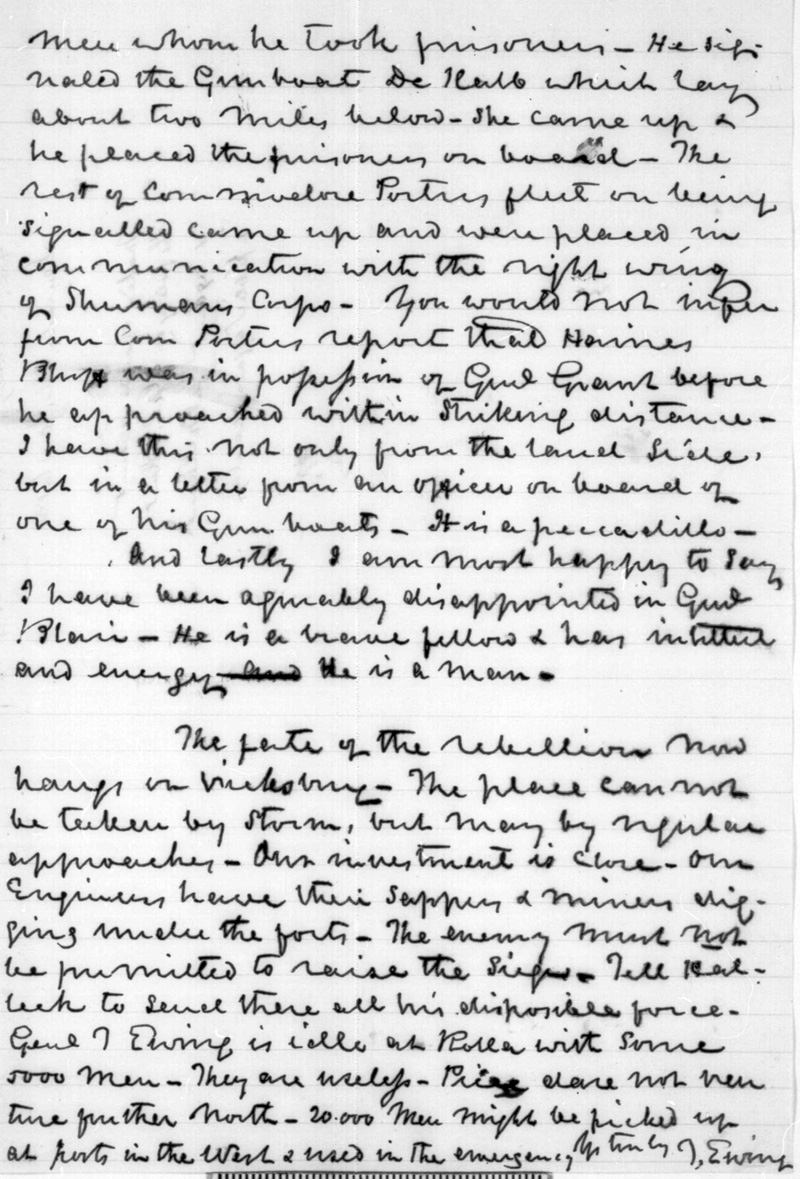 men whom he took prisoners - He sig-
naled the Gunboat De Kalb which lay
about two miles below - She came up &
he placed the prisoners on board - The
rest of Commodore Porters fleet on being
signalled came up and were placed in
communication with the right wing
of Shermans Corps - You would not infer
from Com Porters report that Haines
Bluff was in possession of Genl Grant before
he approached within striking distance -
I have this not only from the land side,
but in a letter from an officer on board of
one of his Gun boats - It is a peccadillo -
And lastly I am most happy to say
I have been agreeably disappointed in Genl
Blair - He is a brave fellow & has intellect
and energy and He is a man -
The fate of the rebellion now
hangs on Vicksburg - The place can not
be taken by storm, but may by regular
approaches - Our investment is close - Our
Engineers have their Sappers & miners dig-
ging under the forts - The enemy must not
be permitted to raise the Siege - Tell Hal-
leck to send there all his disposible force -
Genl T Ewing is idle at Rolla with some
5000 men - They are useless - Price dare not ven
ture further North - 20.000 Men might be picked up
at posts in the West & used in the emergency Yrs truly T, Ewing